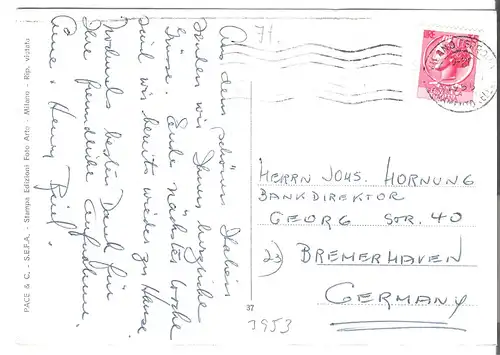 Aus dem schönen Italien
senden wir Ihnen herzliche
Grüsse. Ende nächster Woche
sind wir bereits wieder zu Hause.
Nochmals besten Dank für
Ihre freundliche Aufnahme.
Anne + Henry
PACE & C. - S.E.F.A. - Stampa Edizioni Foto Arte - Milano - Rip. vietata
71.
HERRN JOHS. HORNUNG
BANKDIREKTOR
GEORG STR. 40
BREMERHAVEN
GERMANY
37
1953